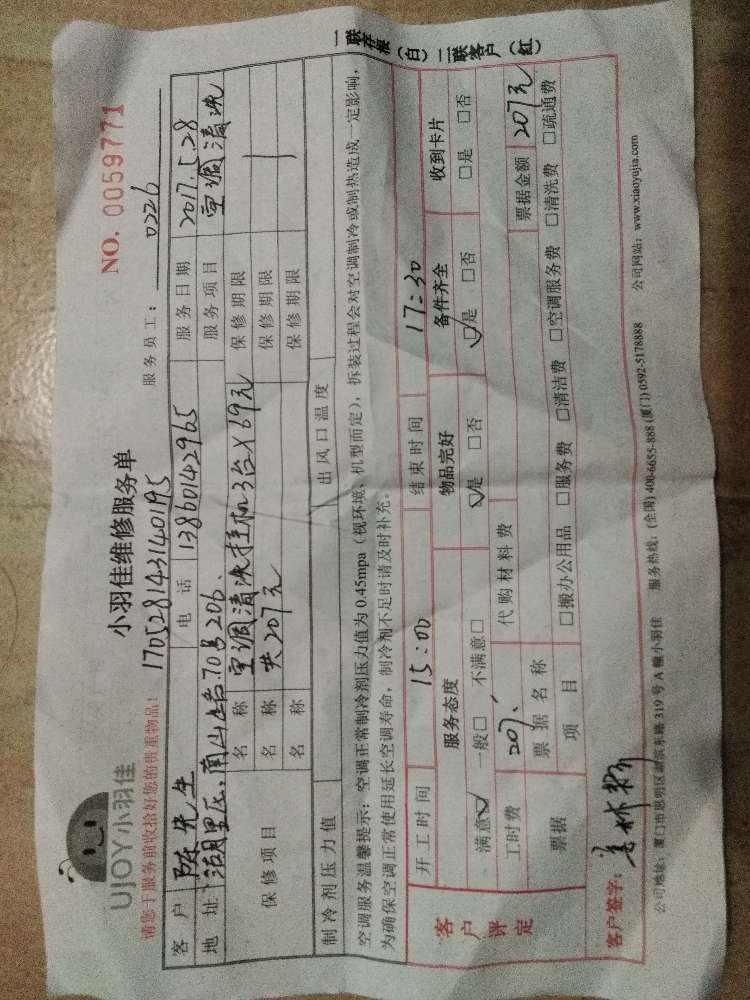 UJOY小羽佳
小羽佳维修服务单
NO. 0059771
请您于服务前收拾好您的贵重物品！ 170528143140195 服务员工： 0226
客户 陈先生 电话 13860142965 服务日期 2017.5.28
地址 湖里区, 南山 70号206. 服务项目 空调清洗
保修项目 名称 空调清洗挂机3台X69元 保修期限
名称 共207元 保修期限
名称 保修期限
制冷剂压力值 出风口温度
空调服务温馨提示：空调正常制冷剂压力值为 0.45mpa（视环境、机型而定），拆装过程会对空调制冷或制热造成一定影响，
为确保空调正常使用延长空调寿命，制冷剂不足时请及时补充。
一联存根（白） 二联客户（红）
客户评定 开工时间 15:00 结束时间 17:30
服务态度 物品完好 备件齐全 收到卡片
满意☑ 一般□ 不满意□ ☑是 □否 ☑是 □否 □是 □否
工时费 207. 代购材料费 票据金额 207元
票据 票据名称
项目 □搬办公用品 □服务费 □清洁费 □空调服务费 □清洗费 □疏通费
客户签字：
公司地址：厦门市思明区 东路 319 号 A 幢小羽佳 服务热线：(全国) 400-6655-888 (厦门) 0592-5178888 公司网站：www.xiaoyujia.com